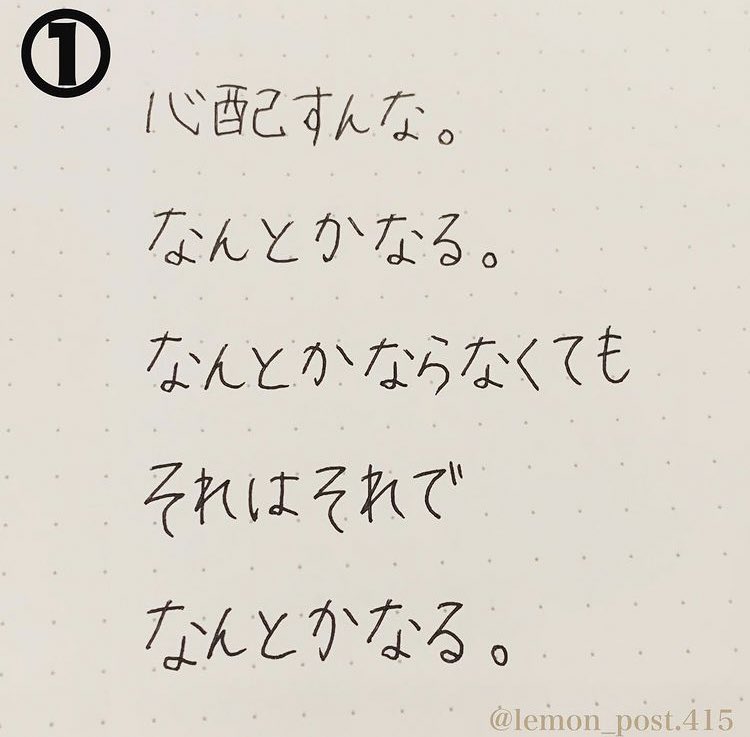 ①
心配すんな。
なんとかなる。
なんとかならなくても
それはそれで
なんとかなる。
@lemon_post.415